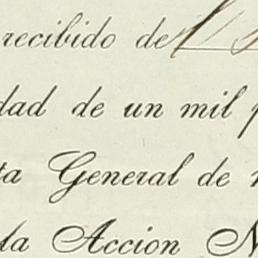 recibido de
dad de un mil
ta General de
da Accion